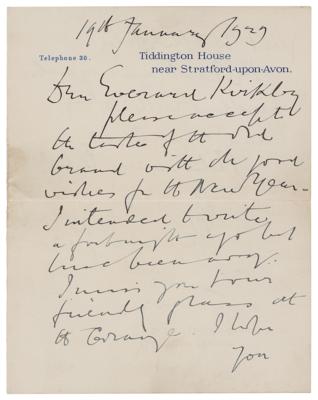 19th January 1929
Telephone 30. Tiddington House
near Stratford-upon-Avon.
Dear Everard Kirkby
please accept
the taste of the old
brand with the good
wishes for the New Year –
I intended to write
a fortnight ago but
have been away.
I miss you &
friendly at
the Grange. I hope
you